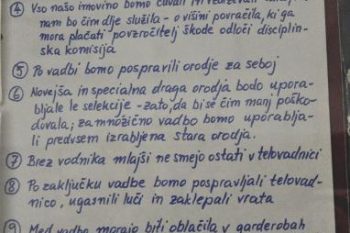 ④ Vso našo imovino bomo čuvali
nam bo čim dlje služila - o višini povračila, ki ga
mora plačati povzročitelj škode odloči disciplin-
ska komisija
⑤ Po vadbi bomo pospravili orodje za seboj
⑥ Novejša in specialna draga orodja bodo upora-
bljale le selekcije - zato, da bi se čim manj poško-
dovala; za množično vadbo bomo uporablja-
li predvsem izrabljena stara orodja.
⑦ Brez vodnika mlajši ne smejo ostati v telovadnici
⑧ Po zaključku vadbe bomo pospravljali telovad-
nico, ugasnili luči in zaklepali vrata
⑨ Med vadbo morajo biti oblačila v garderobah